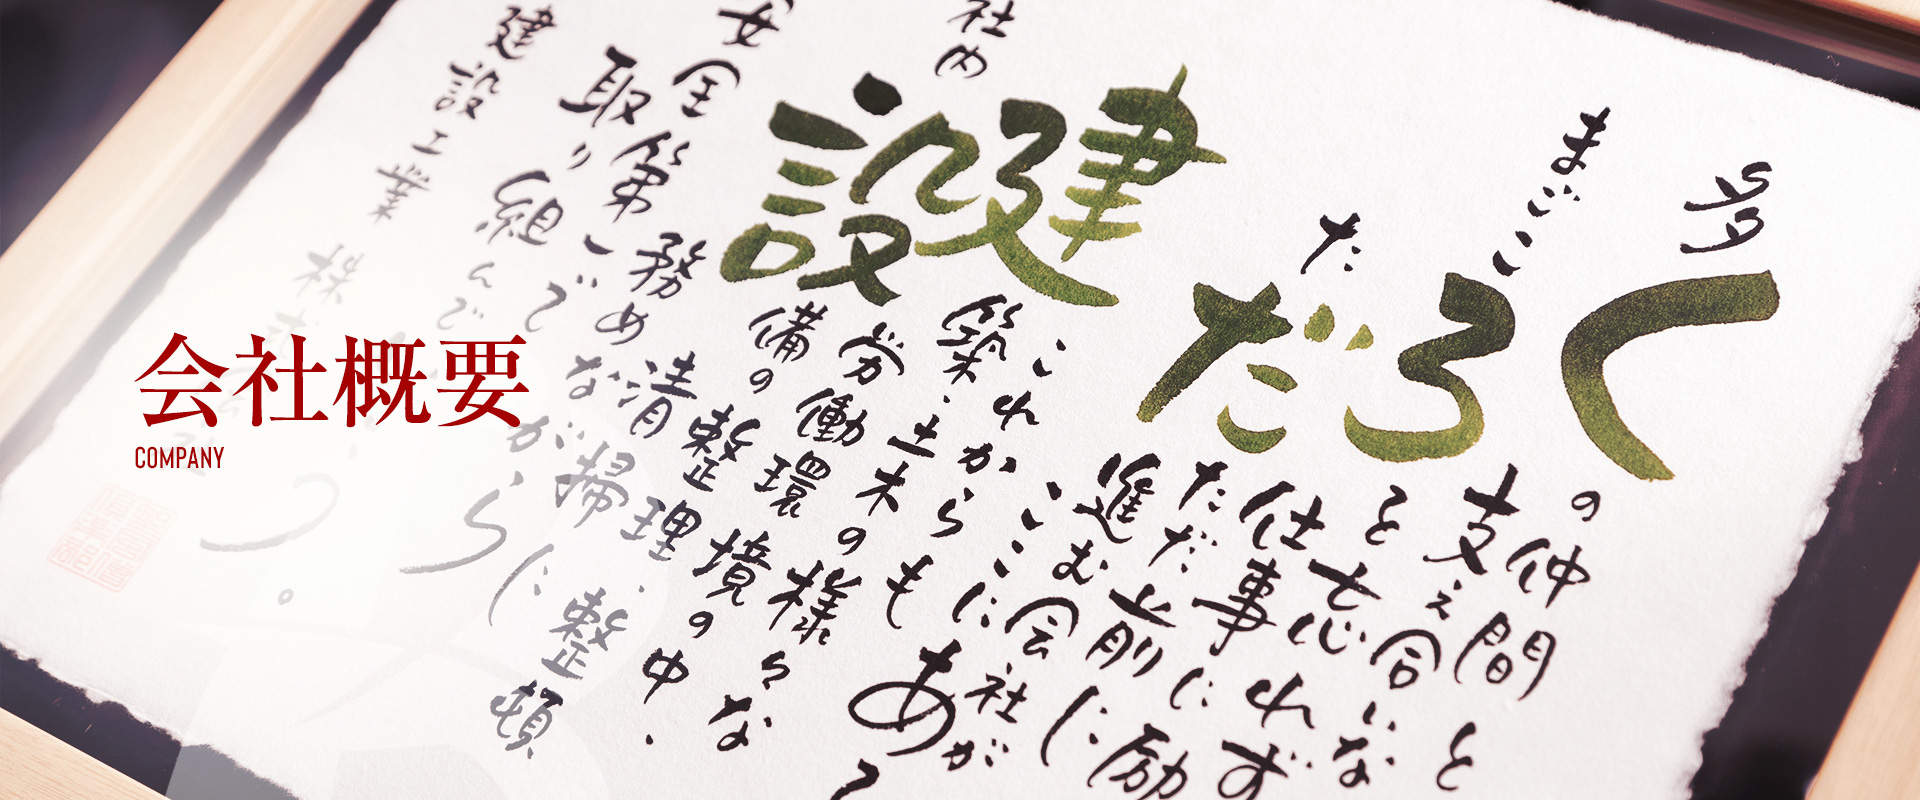 会社概要
COMPANY
多くの仲間と
支え合いな
まごころと
忘れず
仕事に励
ただ
ただ前に
進む会社が
ここに
これからも
ある
建築・土木の様々な
社内
設備の
労働環境の中・
整理・整頓
清掃に
安全第一で
務めながら
取り組んで
建設工業